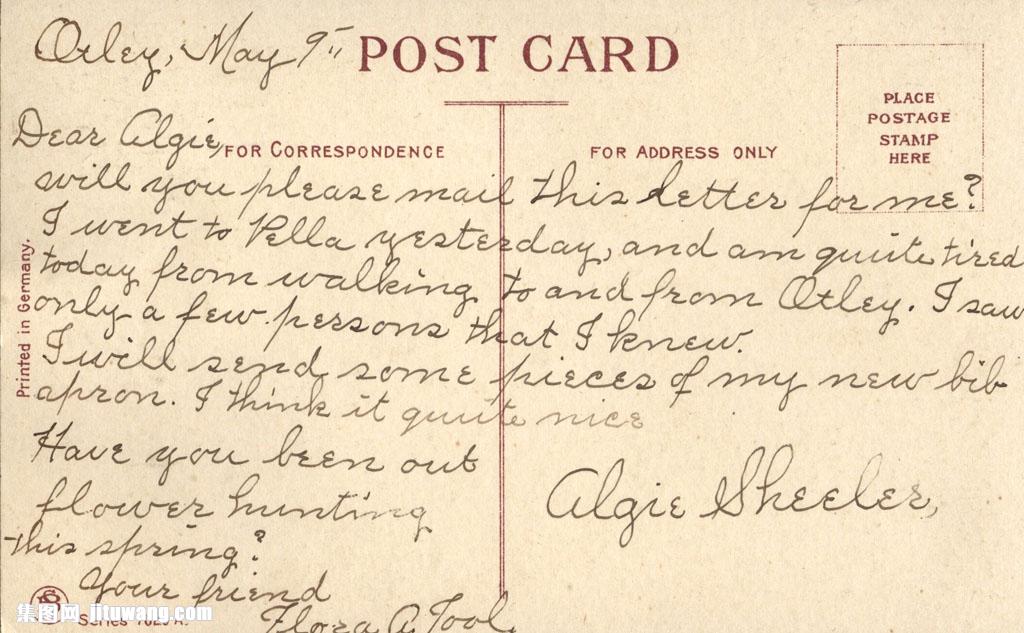 Otley, May 9"
POST CARD
PLACE
POSTAGE
STAMP
HERE
Dear Algie,
FOR CORRESPONDENCE
FOR ADDRESS ONLY
will you please mail this letter for me?
I went to Pella yesterday, and am quite tired
today from walking to and from Otley. I saw
only a few persons that I knew.
I will send some pieces of my new bib
apron. I think it quite nice
Have you been out
flower hunting
this spring?
Your friend
Flora A Tool.
Algie Sheeler,
Printed in Germany.
集图网 jituwang.com
Series